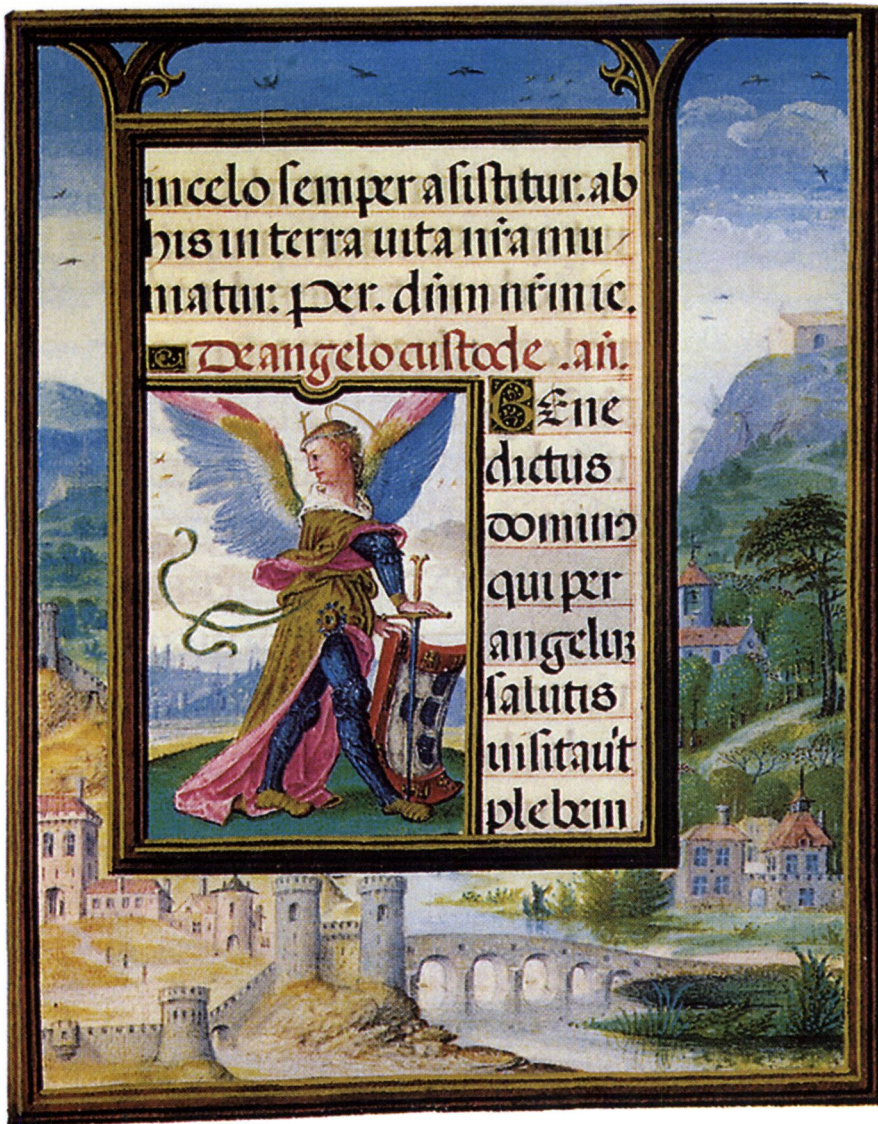 in celo semper asistitur. ab
his in terra uita nr̃a mu
niatur. Per. dñm nr̃m ie.
De angelo custode . añ.
Bene
dictus
dominꝰ
qui per
angelũ
salutis
uisitauit
plebem